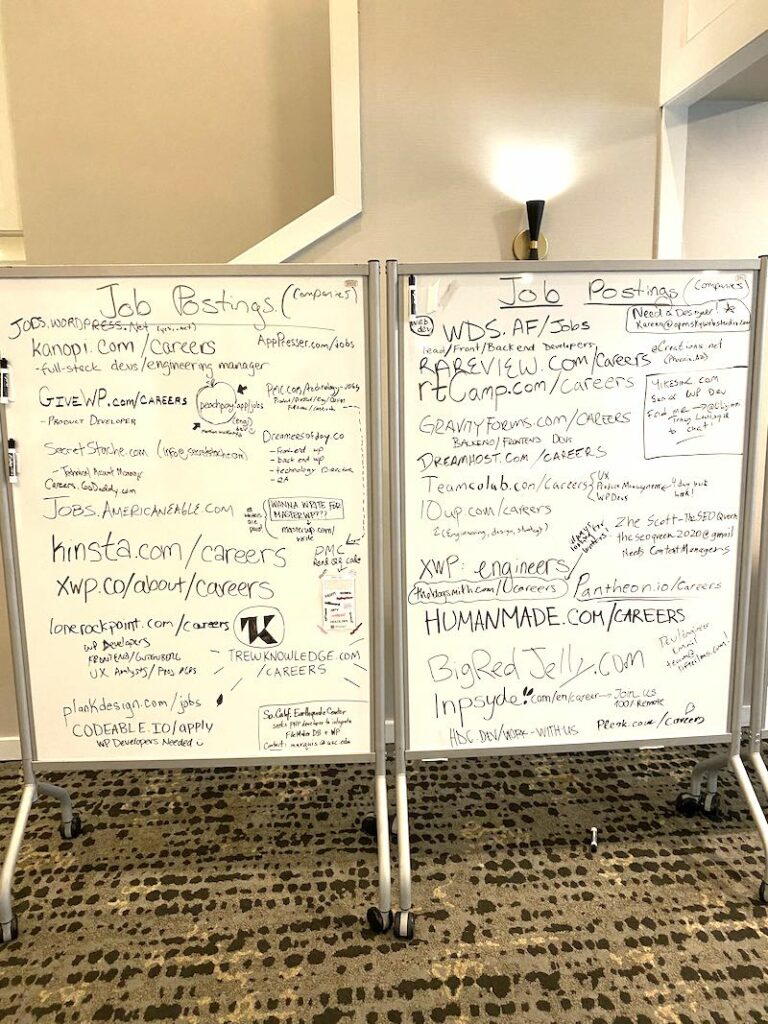 Job Postings (Companies)
JOBS.WORDPRESS.Net
AppPresser.com/jobs
kanopi.com/careers
- full-stack devs/engineering manager
GIVEWP.com/CAREERS
- PRODUCT DEVELOPER
peachpay.app/jobs
(eng)
SecretStache.com (info@secretstache.com)
- Technical Account Manager
Careers.GoDaddy.com
Dreamersofday.co
- front-end wp
- back end wp
- technology Director
- QA
JOBS.AMERICANEAGLE.COM
WANNA WRITE FOR
MASTERWP???
masterwp.com/
write
all
writers
are
paid!
kinsta.com/careers
PMC
Read QR code
xwp.co/about/careers
lonerockpoint.com/careers
WP Developers
FRONTEND/GUTENBERG
UX Analysts/
TK
TREWKNOWLEDGE.COM
/CAREERS
plankdesign.com/jobs
CODEABLE.IO/apply
WP Developers Needed
So. Calif. Earthquake Center
seeks PHP developer to integrate
FileMaker DB + WP
Contact: marquis@usc.edu
Job Postings (Companies)
Need a Designer!
Karen@openskywebstudio.com
web
dev
WDS.AF/Jobs
Lead/Front/Backend Developers
eCreations.net
(Phoenix, AZ)
RAREVIEW.COM/CAREERS
rtCamp.com/careers
YIKESINC.COM
Senior WP Dev
Find me
Tracy
to chat!
GRAVITYFORMS.COM/CAREERS
BACKEND/FRONTEND DEVS
DREAMHOST.COM/CAREERS
Teamcolab.com/careers
UX
Product Management
WP Devs
4 day work
week!
10up.com/careers
(Engineering, design, strategy)
always
looking for
Zhe Scott - The SEO Queen
theseoqueen2020@gmail
Needs Content Managers
XWP: engineers
theblogsmith.com/careers
Pantheon.io/careers
HUMANMADE.COM/CAREERS
BigRedJelly.com
Dev/Engineer
email
Inpsyde.com/en/career → Join us
100% Remote
HDC.DEV/WORK-WITH-US
Plesk.com/careers